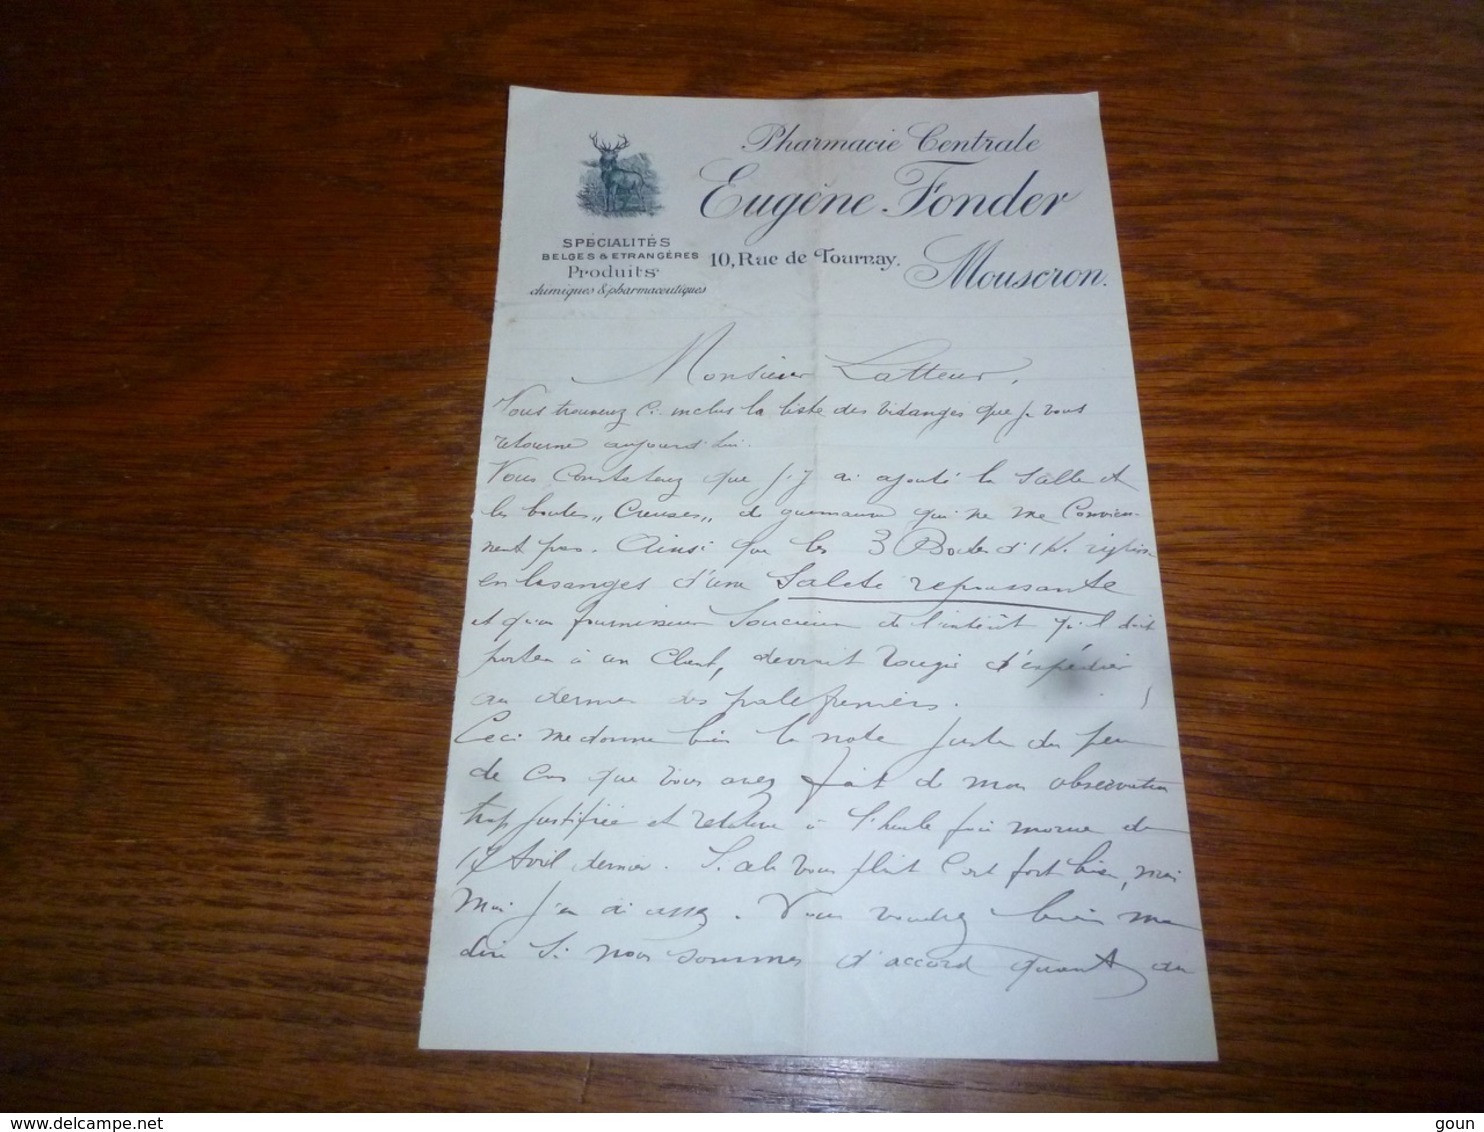 Pharmacie Centrale
Eugène Fonder
10, Rue de Tournay. Mouscron.
SPÉCIALITÉS
BELGES & ETRANGÈRES
Produits
chimiques & pharmaceutiques
Monsieur Latteur,
Vous trouverez ci inclus la liste des vidanges que je vous
retourne aujourd'hui.
Vous constaterez que j'y ai ajouté la
les boules „ Creuses „ de qui ne me convien-
nent pas. Ainsi que les 3 Boites d'1 K.
en losanges d'une Saleté repoussante
et qu'un fournisseur soucieux de l'intérêt qu'il doit
porter à un client, devrait rougir d'expédier
au dernier des palefreniers.
Ceci me donne bien la note juste du peu
de cas que vous avez fait de mon observation
trop justifiée et relative à l'huile foie morue du
17 Avril dernier. Si cela vous plait c'est fort bien, mais
moi j'en ai assez. Vous voudrez bien me
dire si nous sommes d'accord quant au
www.delcampe.net
goun